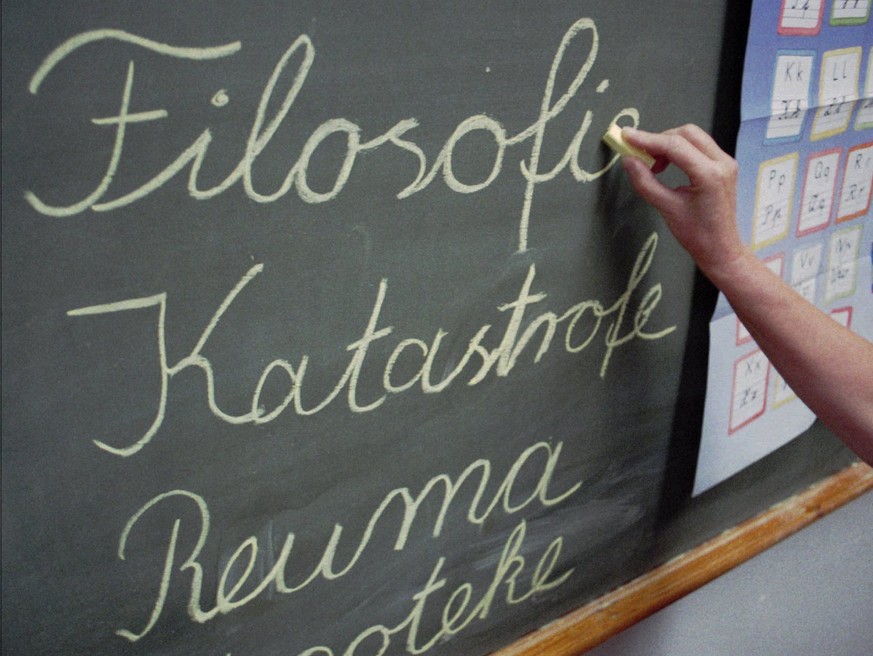 Filosofie
Katastrofe
Reuma
poteke
Kk
Ll
Pp
Qq
Rr
Vv
Xx